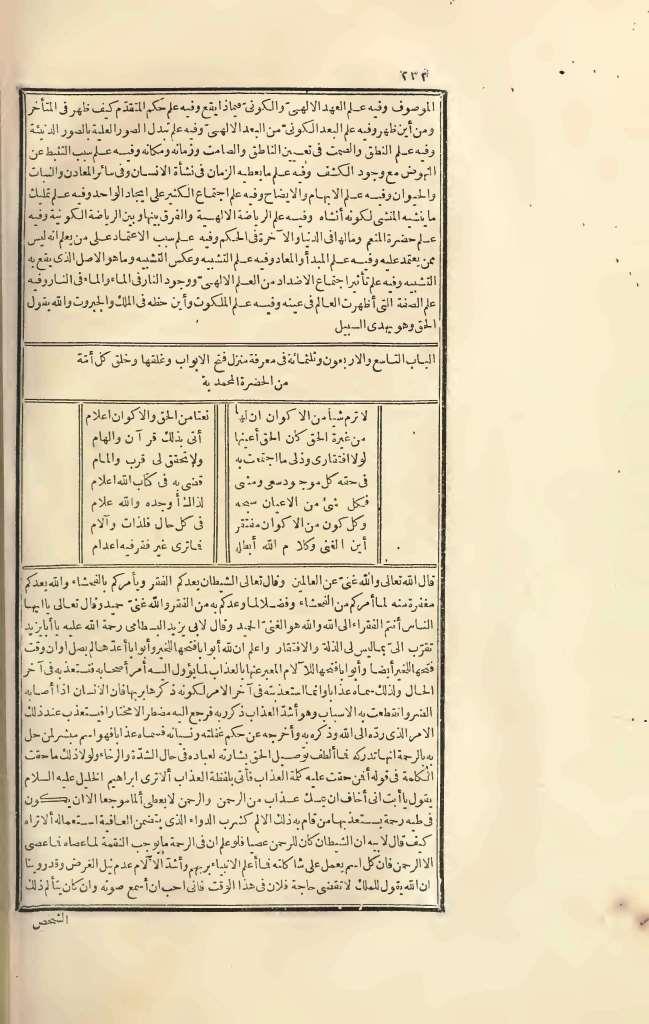 ٢٣٢
الموصوف وفيه علم العهد الالهىّ والكونىّ فماذا يقع وفيه علم حكم المتقدّم كيف ظهر فى المتأخر
ومن أين ظهر وفيه علم البعد الكونىّ من البعد الالهىّ وفيه علم تبدل الصور العلية بالصور الدنيئة
وفيه علم النطق والصمت فى تعيين الناطق والصامت وزمانه ومكانه وفيه علم سبب التثبط عن
النهوض مع وجود الكشف وفيه علم ما يعطيه الزمان فى نشأة الانسان وفى سائر المعادن والنبات
والحيوان وفيه علم الابهام والايضاح وفيه علم اجتماع الكثير على ايجاد الواحد وفيه علم تمليك
ما ينشيه المنشى لكونه أنشاه وفيه علم الرياضة الالهية والفرق بينها وبين الرياضة الكونية وفيه
علم حضرة المنعم ومالها فى الدنيا والآخرة فى الحكم وفيه علم سبب الاعتماد على من يعلم انه ليس
ممن يعتمد عليه وفيه علم المبدأ والمعاد وفيه علم التشبيه وعكس التشبيه وما هو الاصل الذى يقع به
التشبيه وفيه علم تأثير اجتماع الاضداد من العلم الالهىّ ووجود النار فى الماء والماء فى النار وفيه
علم الصفة التى أظهرت العالم فى عينه وفيه علم الملكوت وأين حظه فى الملك والجبروت والله يقول
الحق وهو يهدى السبيل
الباب التاسع والاربعون وثلثمائة فى معرفة منزل فتح الابواب وغلقها وخلق كل أمّة
من الحضرة المحمدية
لا ترم شيأ من الاكوان ان لها نعتا من الحق والاكوان اعلام
من غيرة الحق كان الحق أعينها أتى بذلك قرآن والهام
لولا افتقارى وذلى ما اجتمعت به ولا تحقق لى قرب والمام
فى حقه كل موجود سعى ومشى قضى به فى كتاب الله اعلام
فكل شئ من الاعيان سبحه لذاك أوجده والله علام
وكل كون من الاكوان مفتقر فى كل حال فلذات وآلام
أين الغنىّ وكلام الله أبطله فما ترى غير فقر فيه اعدام
قال الله تعالى والله غنىّ عن العالمين وقال تعالى الشيطان يعدكم الفقر ويأمركم بالفحشاء والله يعدكم
مغفرة منه لما أمركم من الفحشاء وفضلا لما وعدكم به من الفقر والله غنىّ حميد وقال تعالى يا ايها
الناس أنتم الفقراء الى الله والله هو الغنىّ الحميد وقال لابى يزيد البسطامى رحمة الله عليه يا أبا يزيد
تقرّب الىّ بما ليس لى الذلة والافتقار واعلم ان لله أبوابا فتحها للخير وأبوابا أعدّها لم يصل اوان وقت
فتحها للخير أيضا وأبوابا فتحها للآلام المعبر عنها بالعذاب لما يؤول اليه أمر أصحابه فتستعذبه فى آخر
الحال ولذلك سماه عذابا وانما استعذبته فى آخر الامر لكونه ذكرها بربها فان الانسان اذا أصابه
الضر وانقطعت به الاسباب وهو أشدّ العذاب ذكر ربه فرجع اليه مضطرا لا مختارا فيستعذب عند ذلك
الامر الذى ردّه الى الله وذكره به وأخرجه عن حكم غفلته ونسيانه فسماه عذابا فهو اسم مبشر لمن حل
به بالرحمة انها تدركه فما ألطف توصيل الحق بشارته لعباده فى حال الشدّة والرخاء ولولا ذلك ما حقت
الكلمة فى قوله أفمن حقت عليه كلمة العذاب فأتى بلفظة العذاب ألا ترى ابراهيم الخليل عليه السلام
يقول يا أبت انى أخاف ان يمسك عذاب من الرحمن والرحمن لا يعطى ألما موجعا الا ان يكون
فى طيه رحمة يستعذبها من قام به ذلك الالم كشرب الدواء الذى يتضمن العافية استعماله ألا تراه
كيف قال لابيه ان الشيطان كان للرحمن عصيا فلو علم ان فى الرحمة ما يوجب النقمة لما عصاه فما عصى
الا الرحمن فان كل اسم يعمل على شاكلته فما أعلم الانبياء بربهم وأشدّ الآلام عدم نيل الغرض وقد روينا
ان الله يقول للملك لا تقضى حاجة فلان فى هذا الوقت فانى احب ان أسمع صوته وان كان يتألم ذلك
الشخص